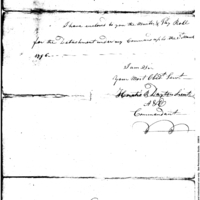 I have enclosed to you the Muster & Pay Roll
for the Detachment under my Command up to the
1796
I am Sir
Your Most Obdt Servt
Horatio R Dayton Lieut
Commandant